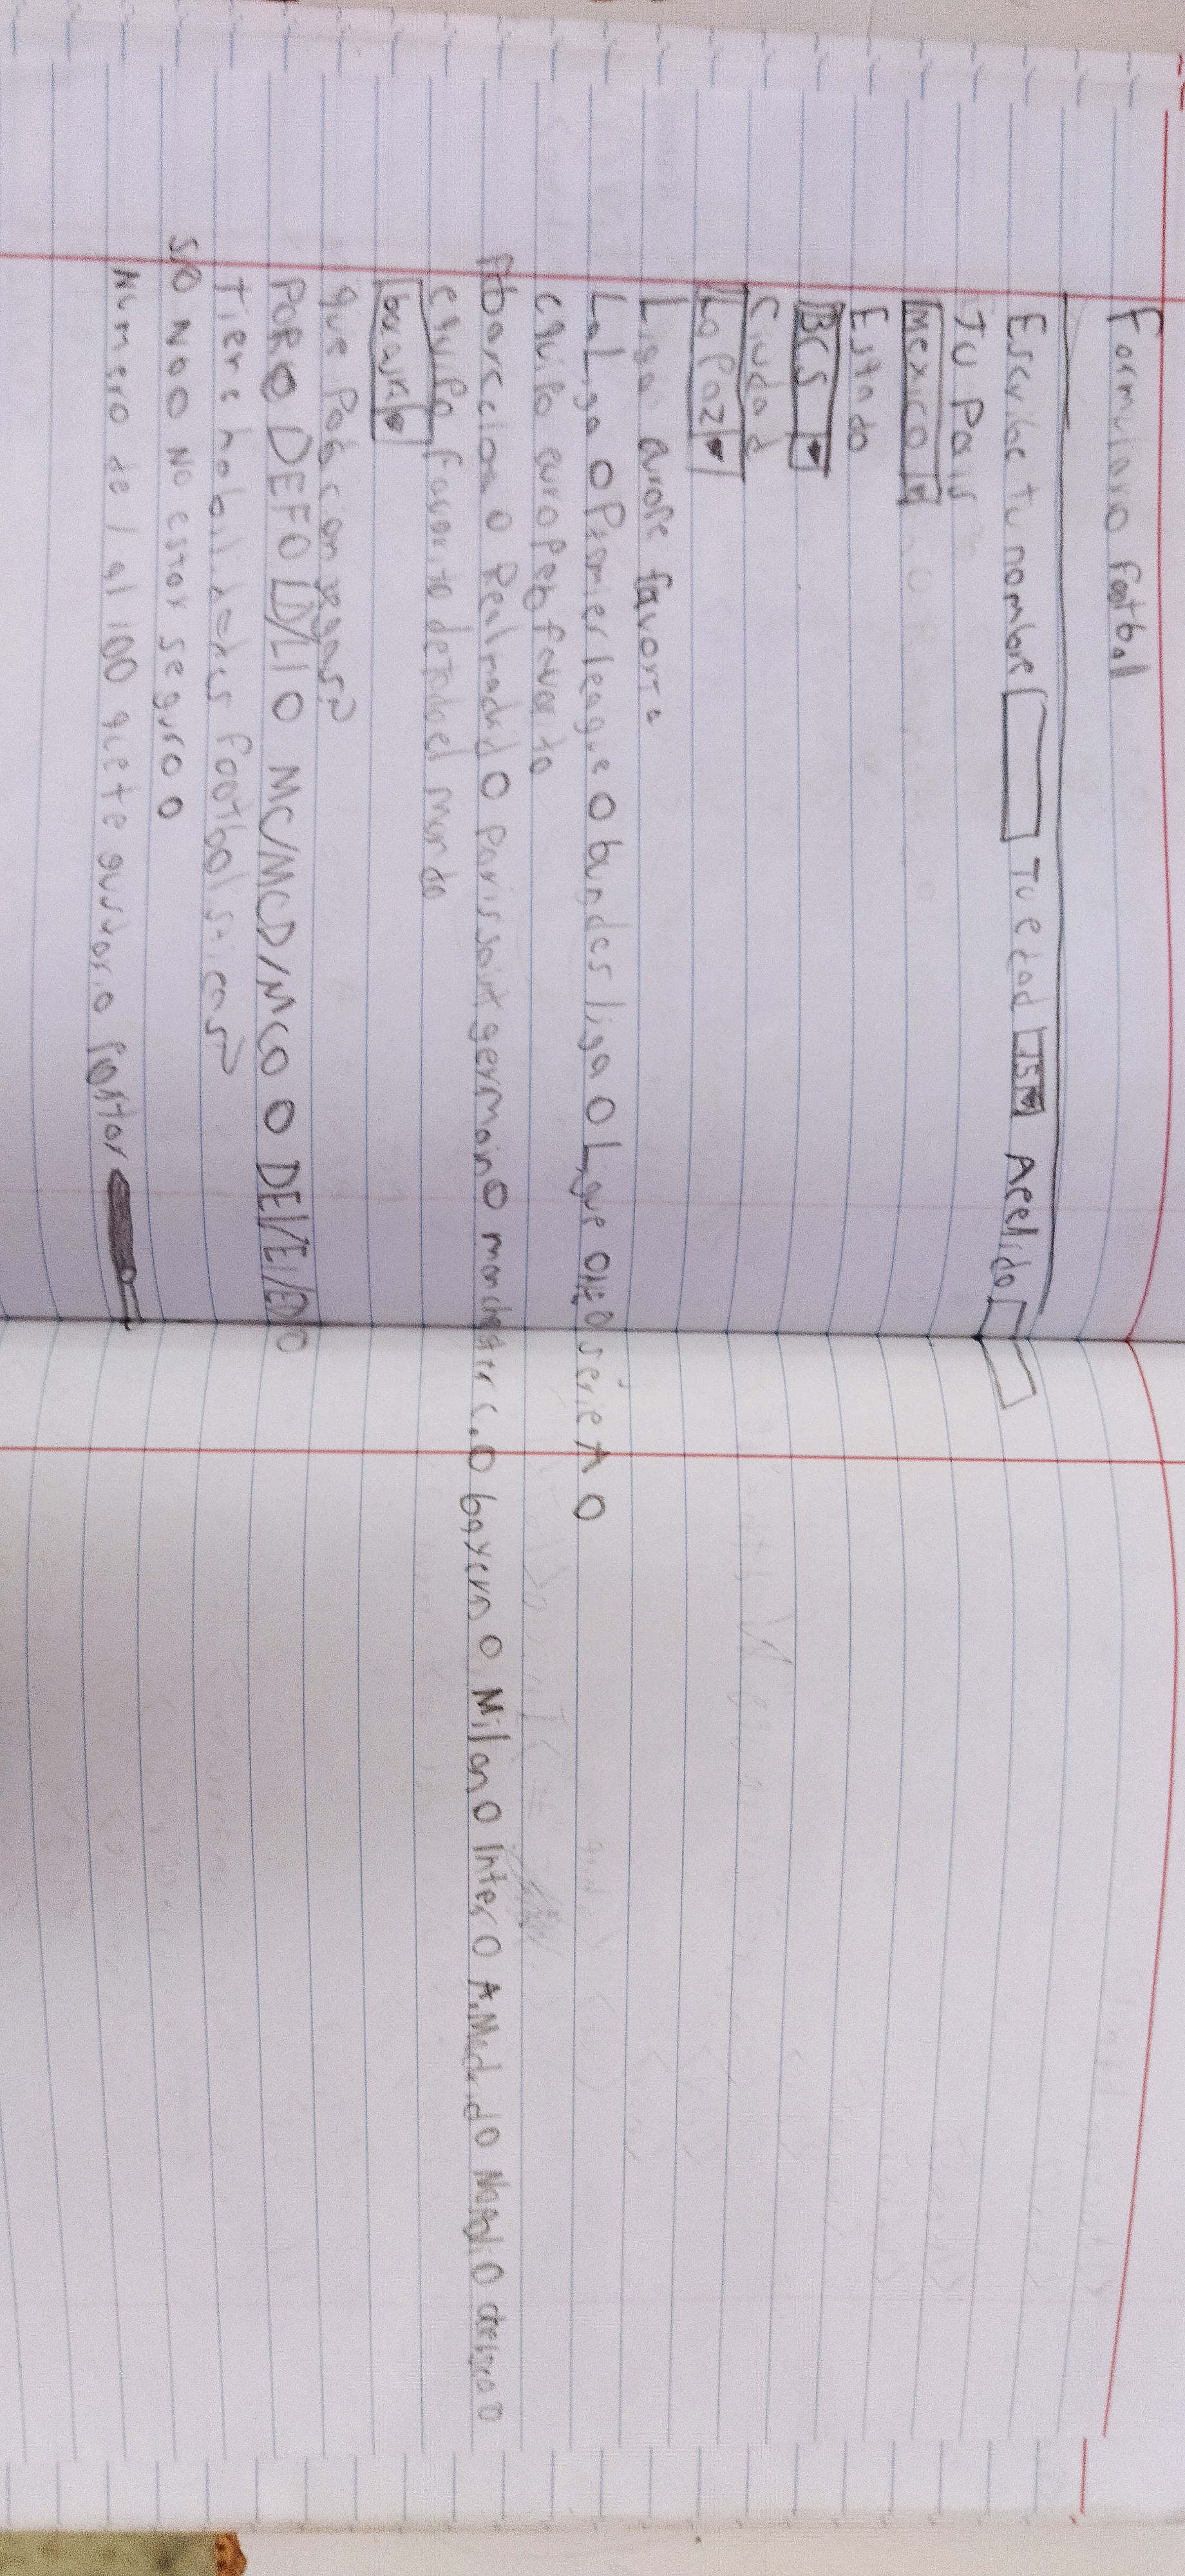 Formulario footbal
Escribe tu nombre Tu edad 15 Apellido
Tu Pais
Mexico
Estado
BCS
Ciudad
La Paz
Liga europe favorita
LaLiga O Premier league O bundes liga O Ligue one O serie A O
equipo europeo favorito
fcbarceloa O Realmadrid O paris saint germain O manchester c. O bayern O Milan O Inter O A.Madrid O Napoli O chelsea O
equipo favorito detodoel mundo
que Posicion juegas?
PORO DEFO LD/LI O MC/MCD/MCO O DEL/EI/ED O
Tiene habilidades footbolsticas?
SiO NoO No estoy seguro O
Numero de 1 al 100 que te gustaria Portar